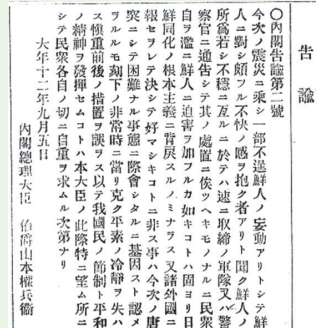 告諭
〇內閣告諭第二號
今次ノ震災ニ乘シ一部不逞鮮人ノ妄動アリトシテ鮮
人ニ對シ頗フル不快ノ感ヲ抱ク者アリト聞ク鮮人ノ
所爲若シ不穩ニ亙ルニ於テハ速ニ取締ノ軍隊又ハ警
察官ニ通告シテ其ノ處置ニ俟ツヘキモノナルニ民衆
自ラ濫ニ鮮人ニ迫害ヲ加フルカ如キコトハ固ヨリ日
鮮同化ノ根本主義ニ背戾スルノミナラス又諸外國ニ
報セラレテ決シテ好マシキコトニ非ス事ハ今次ノ唐
突ニシテ困難ナル事態ニ際會シタルニ基因スト認メ
ラルルモ刻下ノ非常時ニ當リ克ク平素ノ冷靜ヲ失ハ
ス愼重前後ノ措置ヲ誤ラス以テ我國民ノ節制ト平和
ノ精神ヲ發揮セムコトハ本大臣ノ此際特ニ望ム所ニ
シテ民衆各自ノ切ニ自重ヲ求ムル次第ナリ
大年十二年九月五日
內閣總理大臣 伯爵山本權兵衞